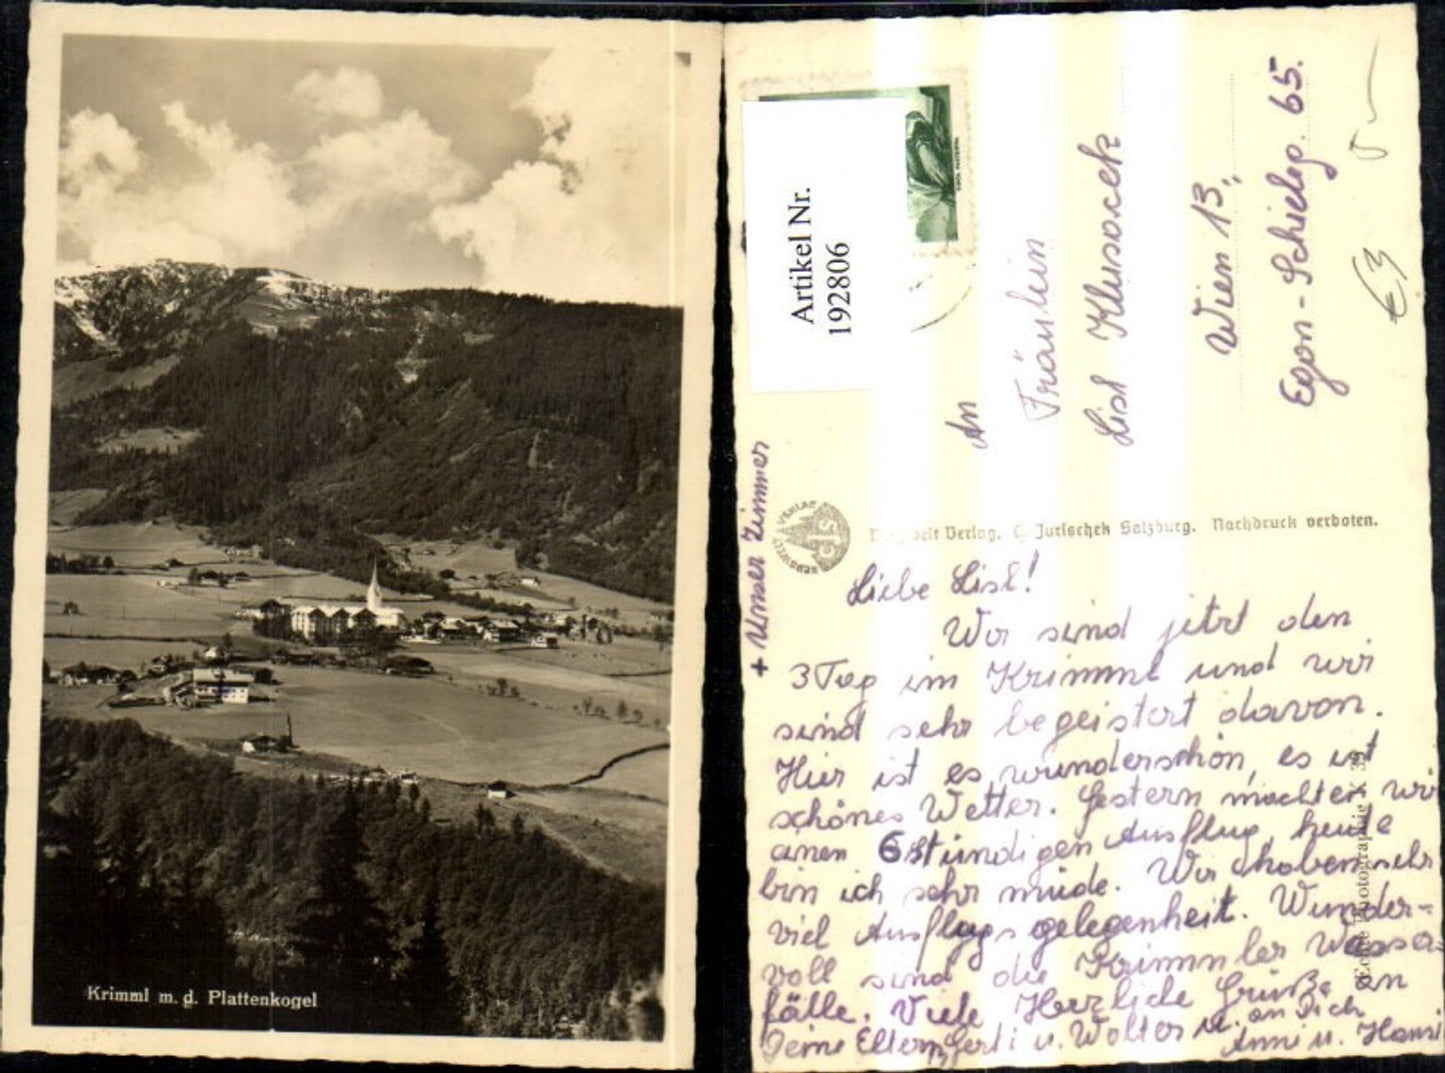 Krimml m. d. Plattenkogel
Artikel Nr.
192806
An
Fräulein
Lisl Klusacek
Wien 13.,
Egon-Schieleg. 65.
€3
+ Unser Zimmer
BERGWELT VERLAG
Verlag. C. Jurischek Salzburg. Nachdruck verboten.
Echte Photographie
Liebe Lisl!
Wir sind jetzt den
3 Tag im Krimml und wir
sind sehr begeistert davon.
Hier ist es wunderschön, es ist
schönes Wetter. Gestern machten wir
einen 6 stündigen Ausflug, heute
bin ich sehr müde. Wir haben sehr
viel Ausflugsgelegenheit. Wunder-
voll sind die Krimmler Wasser
fälle. Viele Herzliche Grüße an
Deine Eltern, Gerti u. Walter u. an Dich
Anni u. Hansi